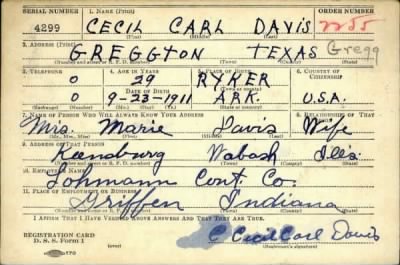 SERIAL NUMBER 1. NAME (Print) ORDER NUMBER
4299 CECIL CARL DAVIS
(First) (Middle) (Last)
2. ADDRESS (Print)
GREGGTON TEXAS Gregg
(Number and street or R. F. D. number) (Town) (County) (State)
3. TELEPHONE 4. AGE IN YEARS 5. PLACE OF BIRTH 6. COUNTRY OF CITIZENSHIP
0 29 RYKER
DATE OF BIRTH (Town or county)
0 9-23-1911 ARK. U.S.A.
(Exchange) (Number) (Mo.) (Day) (Yr.) (State or country)
7. NAME OF PERSON WHO WILL ALWAYS KNOW YOUR ADDRESS 8. RELATIONSHIP OF THAT
Mrs. Marie Davis Wife
(Mr., Mrs., Miss) (First) (Middle) (Last)
9. ADDRESS OF THAT PERSON
Keensburg Wabash Ill's
(Number and street or R. F. D. number) (Town) (County) (State)
10. EMPLOYER'S NAME
Lohmann Cont. Co.
11. PLACE OF EMPLOYMENT OR BUSINESS
Griffen Indiana
(Number and street or R. F. D. number) (Town) (County) (State)
I AFFIRM THAT I HAVE VERIFIED ABOVE ANSWERS AND THAT THEY ARE TRUE.
REGISTRATION CARD
D. S. S. Form 1
C Cecil Carl Davis
(Registrant's signature)